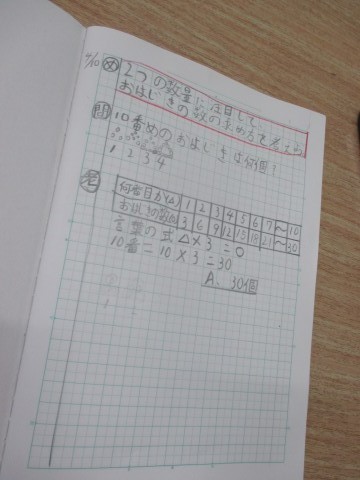 7/10 め 2つの数量に注目して、
おはじきの数の求め方を考えよう
問 10番めのおはじきは何個?
1 2 3 4
考
何番目か(△) 1 2 3 4 5 6 7 〜 10
おはじきの数(個) 3 6 9 12 15 18 21 〜 30
言葉の式 △×3=○
10番=10×3=30
A. 30個